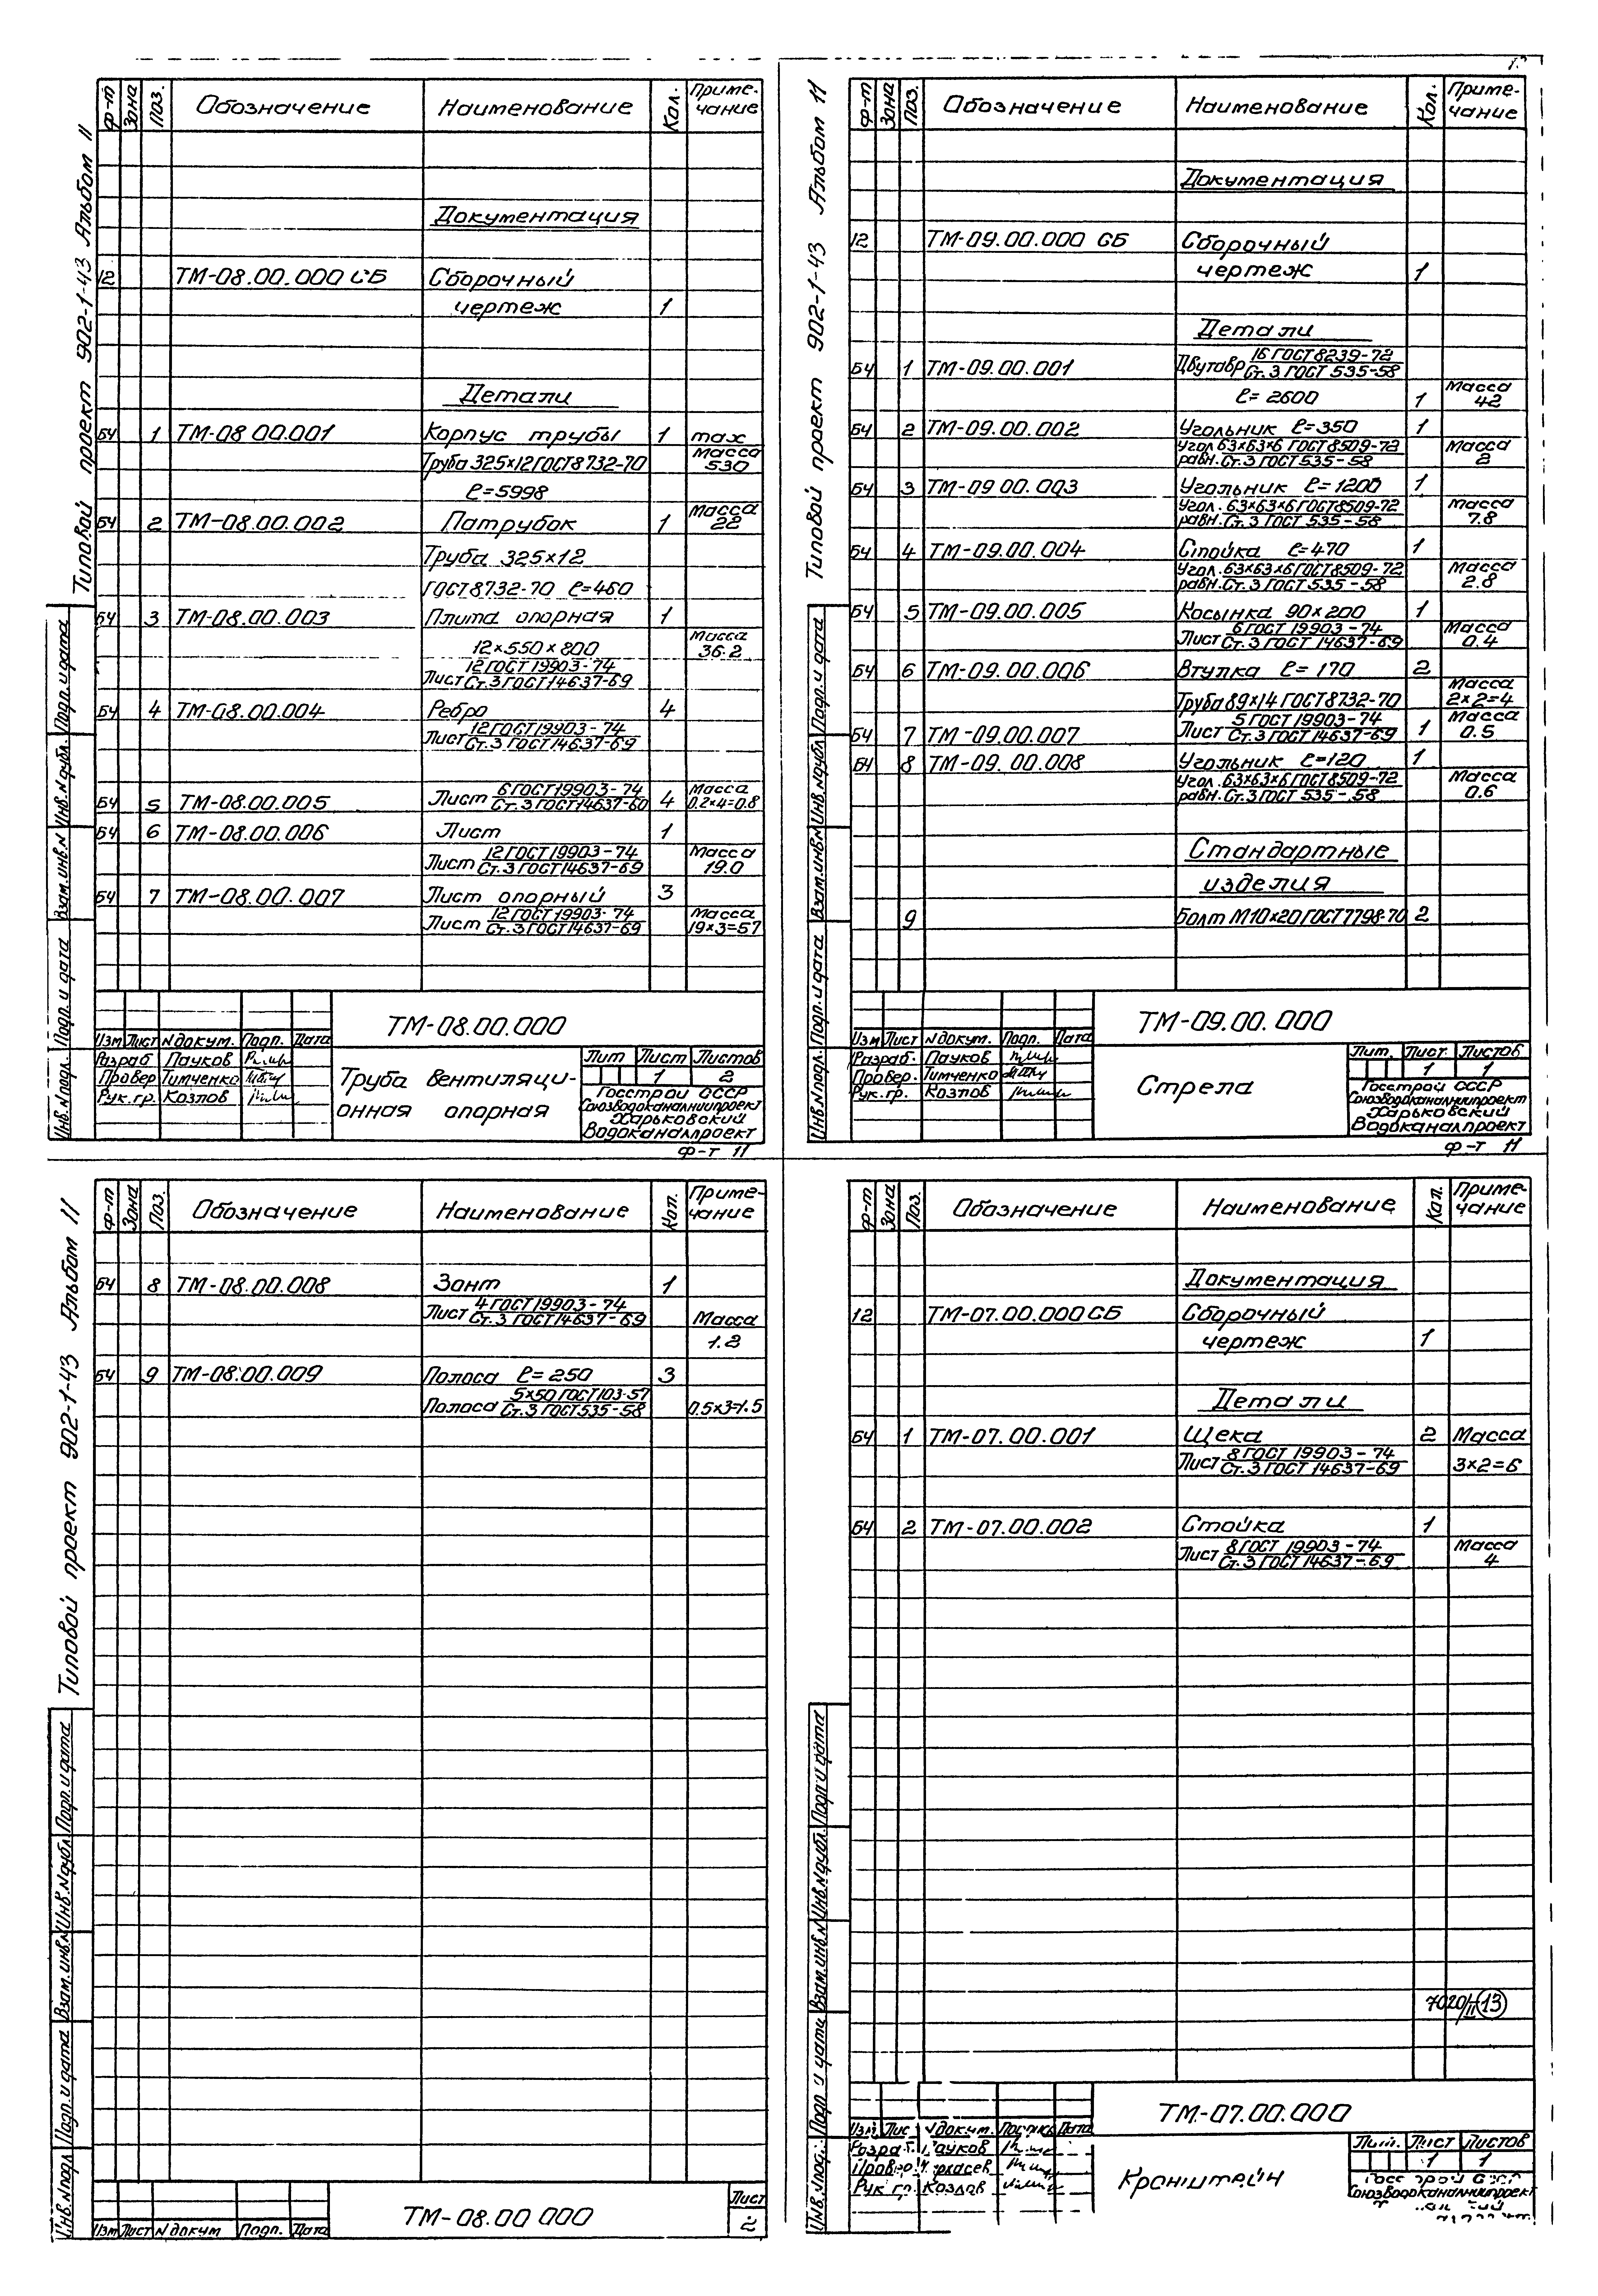 Типовой проект 902-1-43 Альбом II
ф-т Зона Поз. Обозначение Наименование Кол. Приме-
чание
Документация
12 ТМ-08.00.000 СБ Сборочный
чертеж 1
Детали
БЧ 1 ТМ-08.00.001 Корпус трубы 1 max
Труба 325×12 ГОСТ 8732-70 Масса
530
ℓ=5998
БЧ 2 ТМ-08.00.002 Патрубок 1 Масса
22
Труба 325×12
ГОСТ 8732-70 ℓ=460
БЧ 3 ТМ-08.00.003 Плита опорная 1
12×550×800 Масса
36.2
Лист 12 ГОСТ 19903-74
Ст.3 ГОСТ 14637-69
БЧ 4 ТМ-08.00.004 Ребро 4
Лист 12 ГОСТ 19903-74
Ст.3 ГОСТ 14637-69
БЧ 5 ТМ-08.00.005 Лист 6 ГОСТ 19903-74 4 Масса
Ст.3 ГОСТ 14637-60 0.2×4=0.8
БЧ 6 ТМ-08.00.006 Лист 1
Лист 12 ГОСТ 19903-74 Масса
Ст.3 ГОСТ 14637-69 19.0
БЧ 7 ТМ-08.00.007 Лист опорный 3
Лист 12 ГОСТ 19903-74 Масса
Ст.3 ГОСТ 14637-69 19×3=57
Инв.N подл. Подп. и дата Взам.инв.N Инв.N дубл. Подп. и дата
ТМ-08.00.000
Изм Лист N докум. Подп. Дата
Разраб Пауков
Провер Тимченко
Рук.гр. Козлов
Труба вентиляци-
онная опорная
Лит Лист Листов
1 2
Госстрой СССР
Союзводоканалниипроект
Харьковский
Водоканалпроект
ф-т 11
Типовой проект 902-1-43 Альбом 11
ф-т Зона Поз. Обозначение Наименование Кол. Приме-
чание
Документация
12 ТМ-09.00.000 СБ Сборочный
чертеж 1
Детали
БЧ 1 ТМ-09.00.001 Двутавр 16 ГОСТ 8239-72
Ст.3 ГОСТ 535-58
ℓ=2600 1 Масса
42
БЧ 2 ТМ-09.00.002 Угольник ℓ=350 1
Угол. 63×63×6 ГОСТ 8509-72 Масса
равн. Ст.3 ГОСТ 535-58 2
БЧ 3 ТМ-09.00.003 Угольник ℓ=1200 1
Угол. 63×63×6 ГОСТ 8509-72 Масса
равн. Ст.3 ГОСТ 535-58 7.8
БЧ 4 ТМ-09.00.004 Стойка ℓ=470 1
Угол. 63×63×6 ГОСТ 8509-72 Масса
равн. Ст.3 ГОСТ 535-58 2.8
БЧ 5 ТМ-09.00.005 Косынка 90×200 1
Лист 6 ГОСТ 19903-74 Масса
Ст.3 ГОСТ 14637-69 0.4
БЧ 6 ТМ-09.00.006 Втулка ℓ=170 2
Труба 89×14 ГОСТ 8732-70 Масса
2×2=4
БЧ 7 ТМ-09.00.007 Лист 5 ГОСТ 19903-74 1 Масса
Ст.3 ГОСТ 14637-69 0.5
БЧ 8 ТМ-09.00.008 Угольник ℓ=120 1
Угол. 63×63×6 ГОСТ 8509-72 Масса
равн. Ст.3 ГОСТ 535-58 0.6
Стандартные
изделия
9 Болт М10×20 ГОСТ 7798-70 2
Инв.N подл. Подп. и дата Взам.инв.N Инв.N дубл. Подп. и дата
ТМ-09.00.000
Изм Лист N докум. Подп. Дата
Разраб. Пауков
Провер. Тимченко
Рук.гр. Козлов
Стрела
Лит. Лист Листов
1 1
Госстрой СССР
Союзводоканалниипроект
Харьковский
Водоканалпроект
ф-т 11
Типовой проект 902-1-43 Альбом 11
ф-т Зона Поз. Обозначение Наименование Кол. Приме-
чание
БЧ 8 ТМ-08.00.008 Зонт 1
Лист 4 ГОСТ 19903-74 Масса
Ст.3 ГОСТ 14637-69
1.2
БЧ 9 ТМ-08.00.009 Полоса ℓ=250 3
Полоса 5×50 ГОСТ 103-57 0.5×3=1.5
Ст.3 ГОСТ 535-58
Инв.N подл Подп. и дата Взам.инв.N Инв.N дубл. Подп. и дата
Изм Лист N докум Подп. Дата
ТМ-08.00 000
Лист
2
ф-т Зона Поз. Обозначение Наименование Кол. Приме-
чание
Документация
12 ТМ-07.00.000 СБ Сборочный
чертеж 1
Детали
БЧ 1 ТМ-07.00.001 Щека 2 Масса
Лист 8 ГОСТ 19903-74 3×2=6
Ст.3 ГОСТ 14637-69
БЧ 2 ТМ-07.00.002 Стойка 1
Лист 8 ГОСТ 19903-74 Масса
Ст.3 ГОСТ 14637-69 4
7020/II 13
Инв.N подл. Подп и дата Взам.инв.N Инв.N дубл. Подп и дата
ТМ-07.00.000
Изм. Лист N докум. Подпись Дата
Пауков
Рук гр. Козлов
Кронштейн
Лит. Лист Листов
1 1
Союзводоканалниипроект